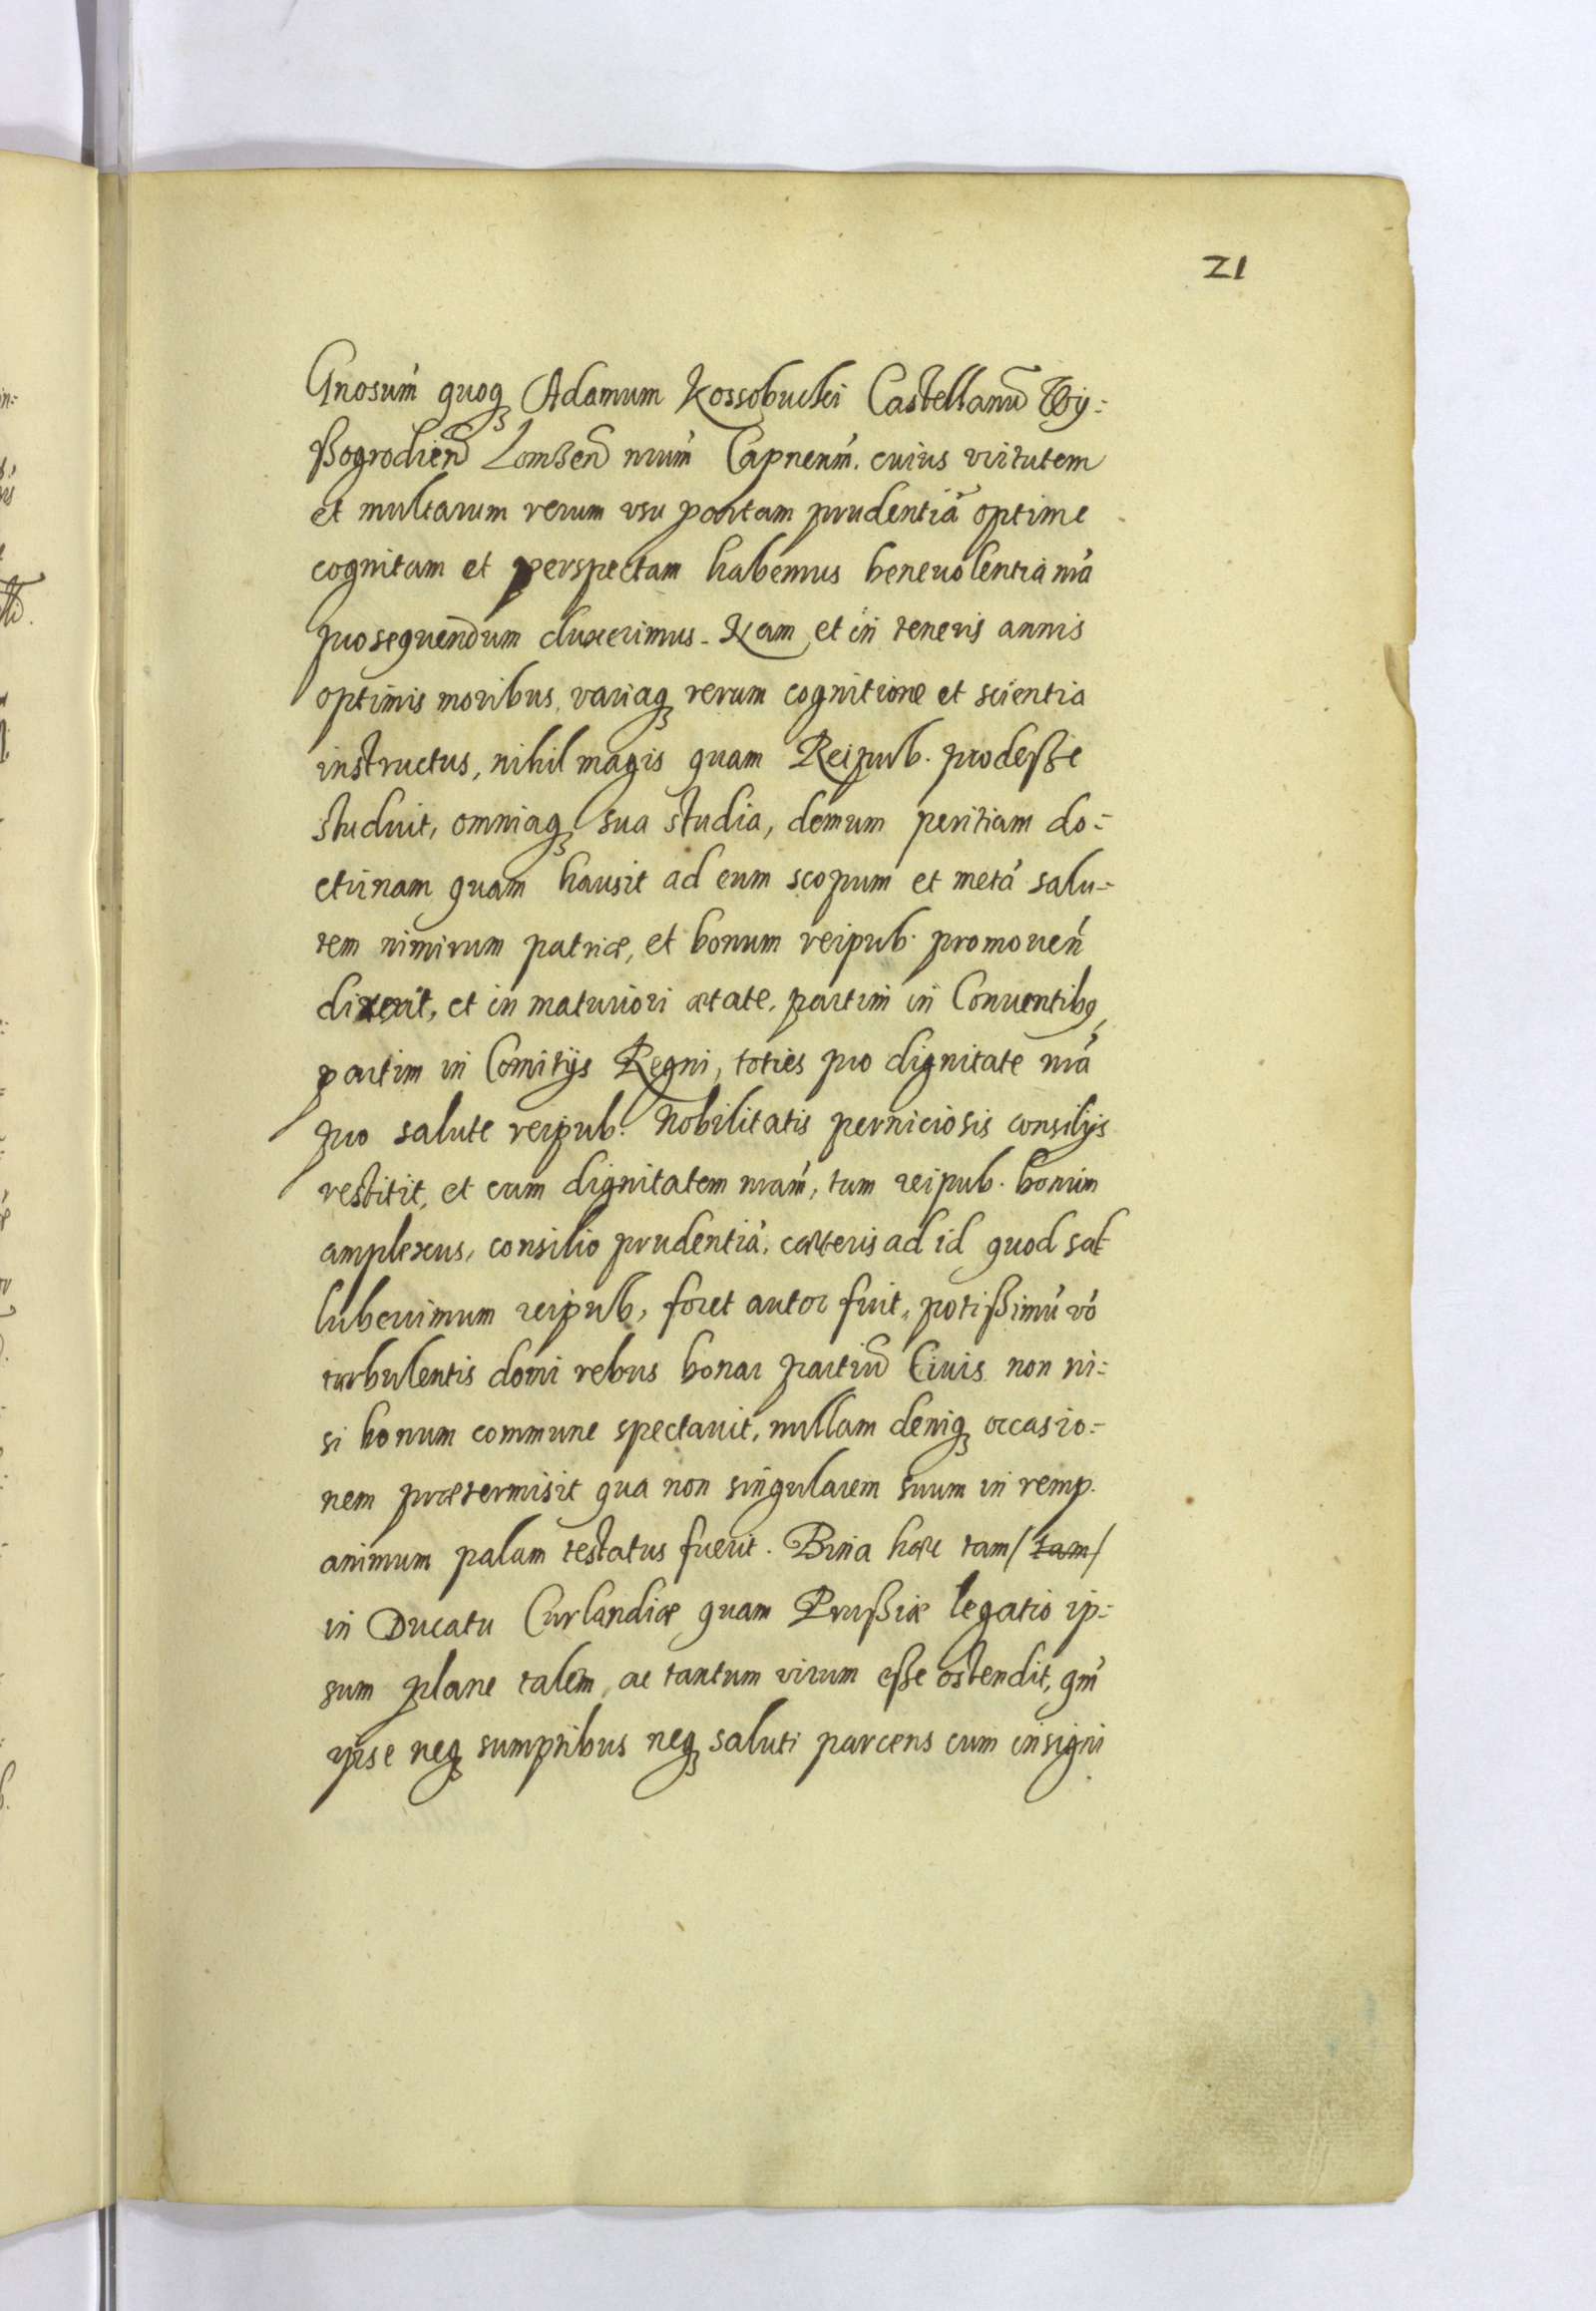 21
Gnosum̃ quoq₃ Adamum Kossobucki Castellanũ Wy:
ßogrodień Lomzeń nrum̃ Capneum̃. cuius virtutem
et multarum rerum vsu partam prudentiã optime
cognitam et perspectam habemus beneuolentia nrã
prosequendum duxerimus. Nam et in teneris annis
optimis moribus, variaq₃ rerum cognitione et scientia
instructus, nihil magis quam Reipub. prodeße
studuit, omniaq₃ sua studia, demum peritiam do:
ctrinam quam hausit ad eum scopum et metã salu:
tem nimirum patriæ, et bonum reipub. promouen̄
dixerit, et in maturiori ætate, partim in Conuentibꝰ,
partim in Comitijs Regni, toties pro dignitate nrã
pro salute reipub. Nobilitatis perniciosis consilijs
restitit, et cum dignitatem nram̃, tum reipub. bonum
amplexus, consilio prudentiã, cæteris ad id quod sal
luberrimum reipub, foret autor fuit, potißimũ vo᷃
turbulentis domi rebus bonar partiũ Ciuis non ni:
si bonum commune spectauit, nullam deniq₃ occasio:
nem prætermisit qua non singularem suum in remp.
animum palam testatus fuerit. Bina hæc tam/ tam/
in Ducatu Curlandiæ quam Prußiæ legatio ip:
sum plane talem, ac tantum virum eße ostendit, qm̃
ipse neq₃ sumptibus neq₃ saluti parcens cum insigni